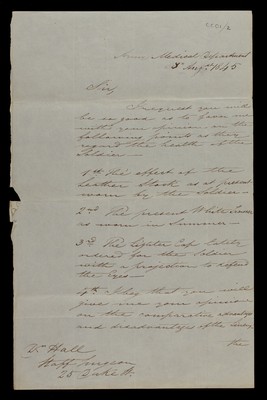 Army Medical Department
8 Augt. 1845
Sir,
I request you will
be so good as to favor me
with your opinion on the
following points as they
regard the health of the
Soldier—
1st The effect of the
Leather Stock as at present
worn by the Soldier—
2nd The present White Trousers
as worn in Summer—
3rd The lighter Cap lately
ordered for the Soldier
with a projection to defend
the Eyes—
4th I beg that you will
give me your opinion
on the comparative advantages
and disadvantages of the
the
Dr Hall
Staff Surgeon
28 Duke St.